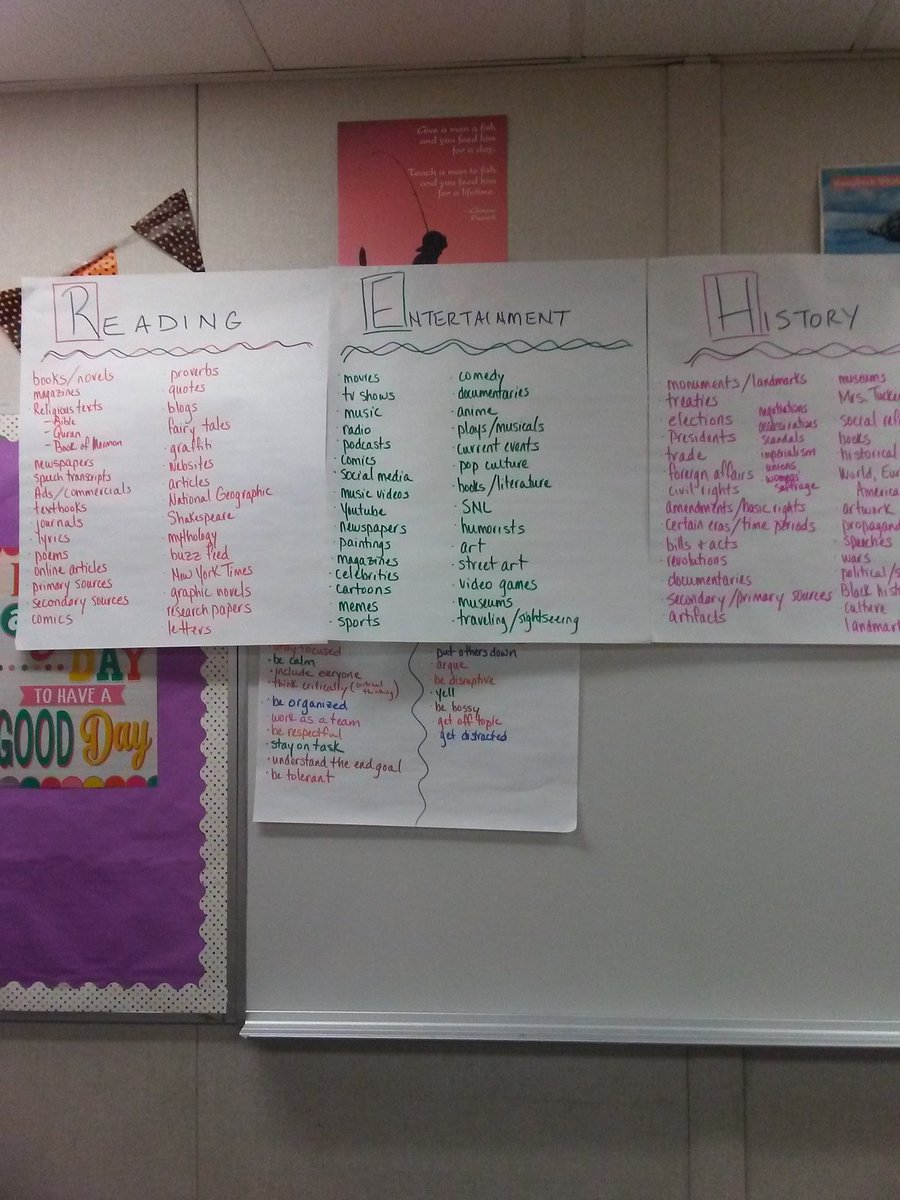 Give a man a fish
and you feed him
for a day.
Teach a man to fish
and you feed him
for a lifetime.
--Chinese
Proverb
READING
books/novels
magazines
Religious texts
- Bible
- Quran
- Book of Mormon
newspapers
speech transcripts
Ads/commercials
textbooks
journals
lyrics
poems
online articles
primary sources
secondary sources
comics
proverbs
quotes
blogs
fairy tales
graffiti
websites
articles
National Geographic
Shakespeare
mythology
buzz feed
New York Times
graphic novels
research papers
letters
ENTERTAINMENT
movies
tv shows
music
radio
podcasts
comics
social media
music videos
Youtube
newspapers
paintings
magazines
celebrities
cartoons
memes
sports
comedy
documentaries
anime
plays/musicals
current events
pop culture
books/literature
SNL
humorists
art
street art
video games
museums
traveling/sightseeing
HISTORY
monuments/landmarks
treaties
elections
Presidents
trade
foreign affairs
civil rights
amendments/basic rights
certain eras/time periods
bills + acts
revolutions
documentaries
secondary/primary sources
artifacts
negotiations
assassinations
scandals
imperialism
unions
womens
suffrage
museums
Mrs. Tucke
social ref
books
historical
World, Eur
America
artwork
propagand
speeches
wars
political/s
Black hist
culture
landmar
stay focused
be calm
include everyone
think critically (critical thinking)
be organized
work as a team
be respectful
stay on task
understand the end goal
be tolerant
put others down
argue
be disruptive
yell
be bossy
get off topic
get distracted
DAY
TO HAVE A
GOOD Day